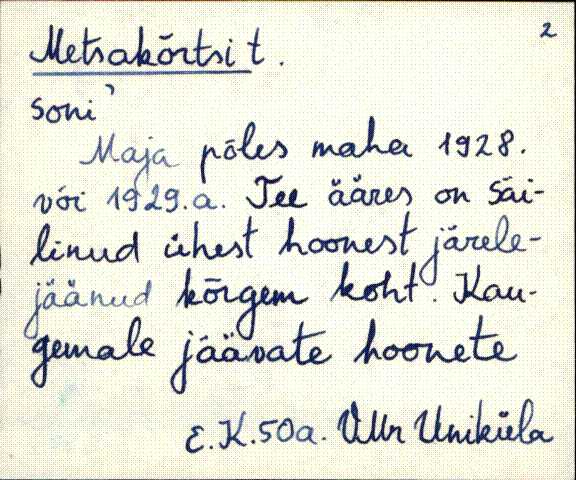 2
Metsakõrtsi t.
soni'
Maja põles maha 1928.
või 1929.a. Tee ääres on säi-
linud ühest hoonest järele-
jäänud kõrgem koht. Kau-
gemale jäävate hoonete
E.K.50a. V.Mr Uniküla